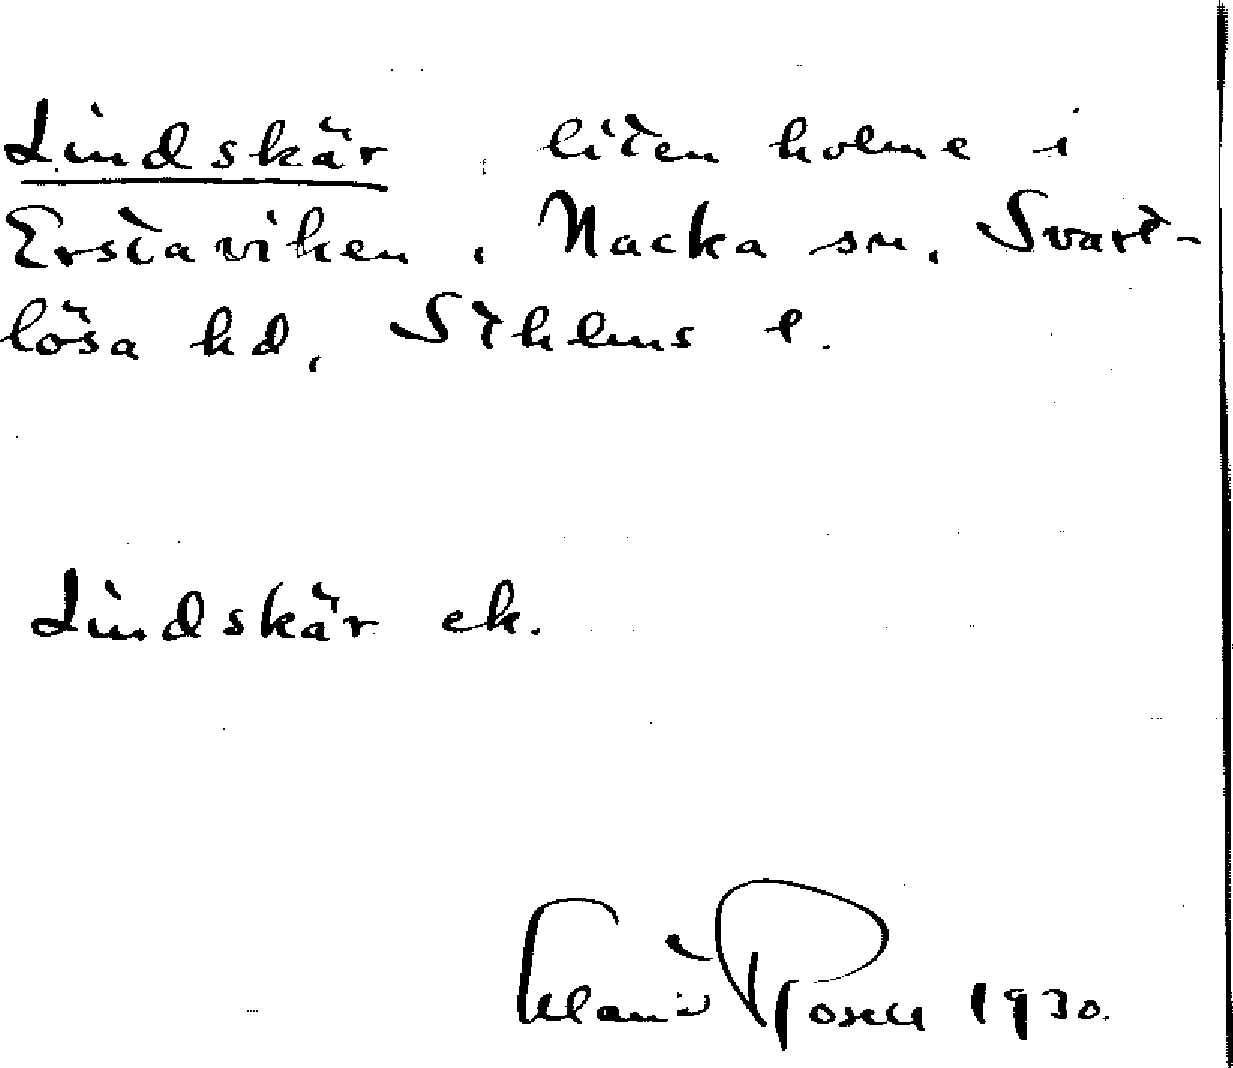 Lindskär, liten holme i
Erstaviken, Nacka sn, Svart-
lösa hd, Sthlms l.
Lindskär ek.
Rosen 1930.